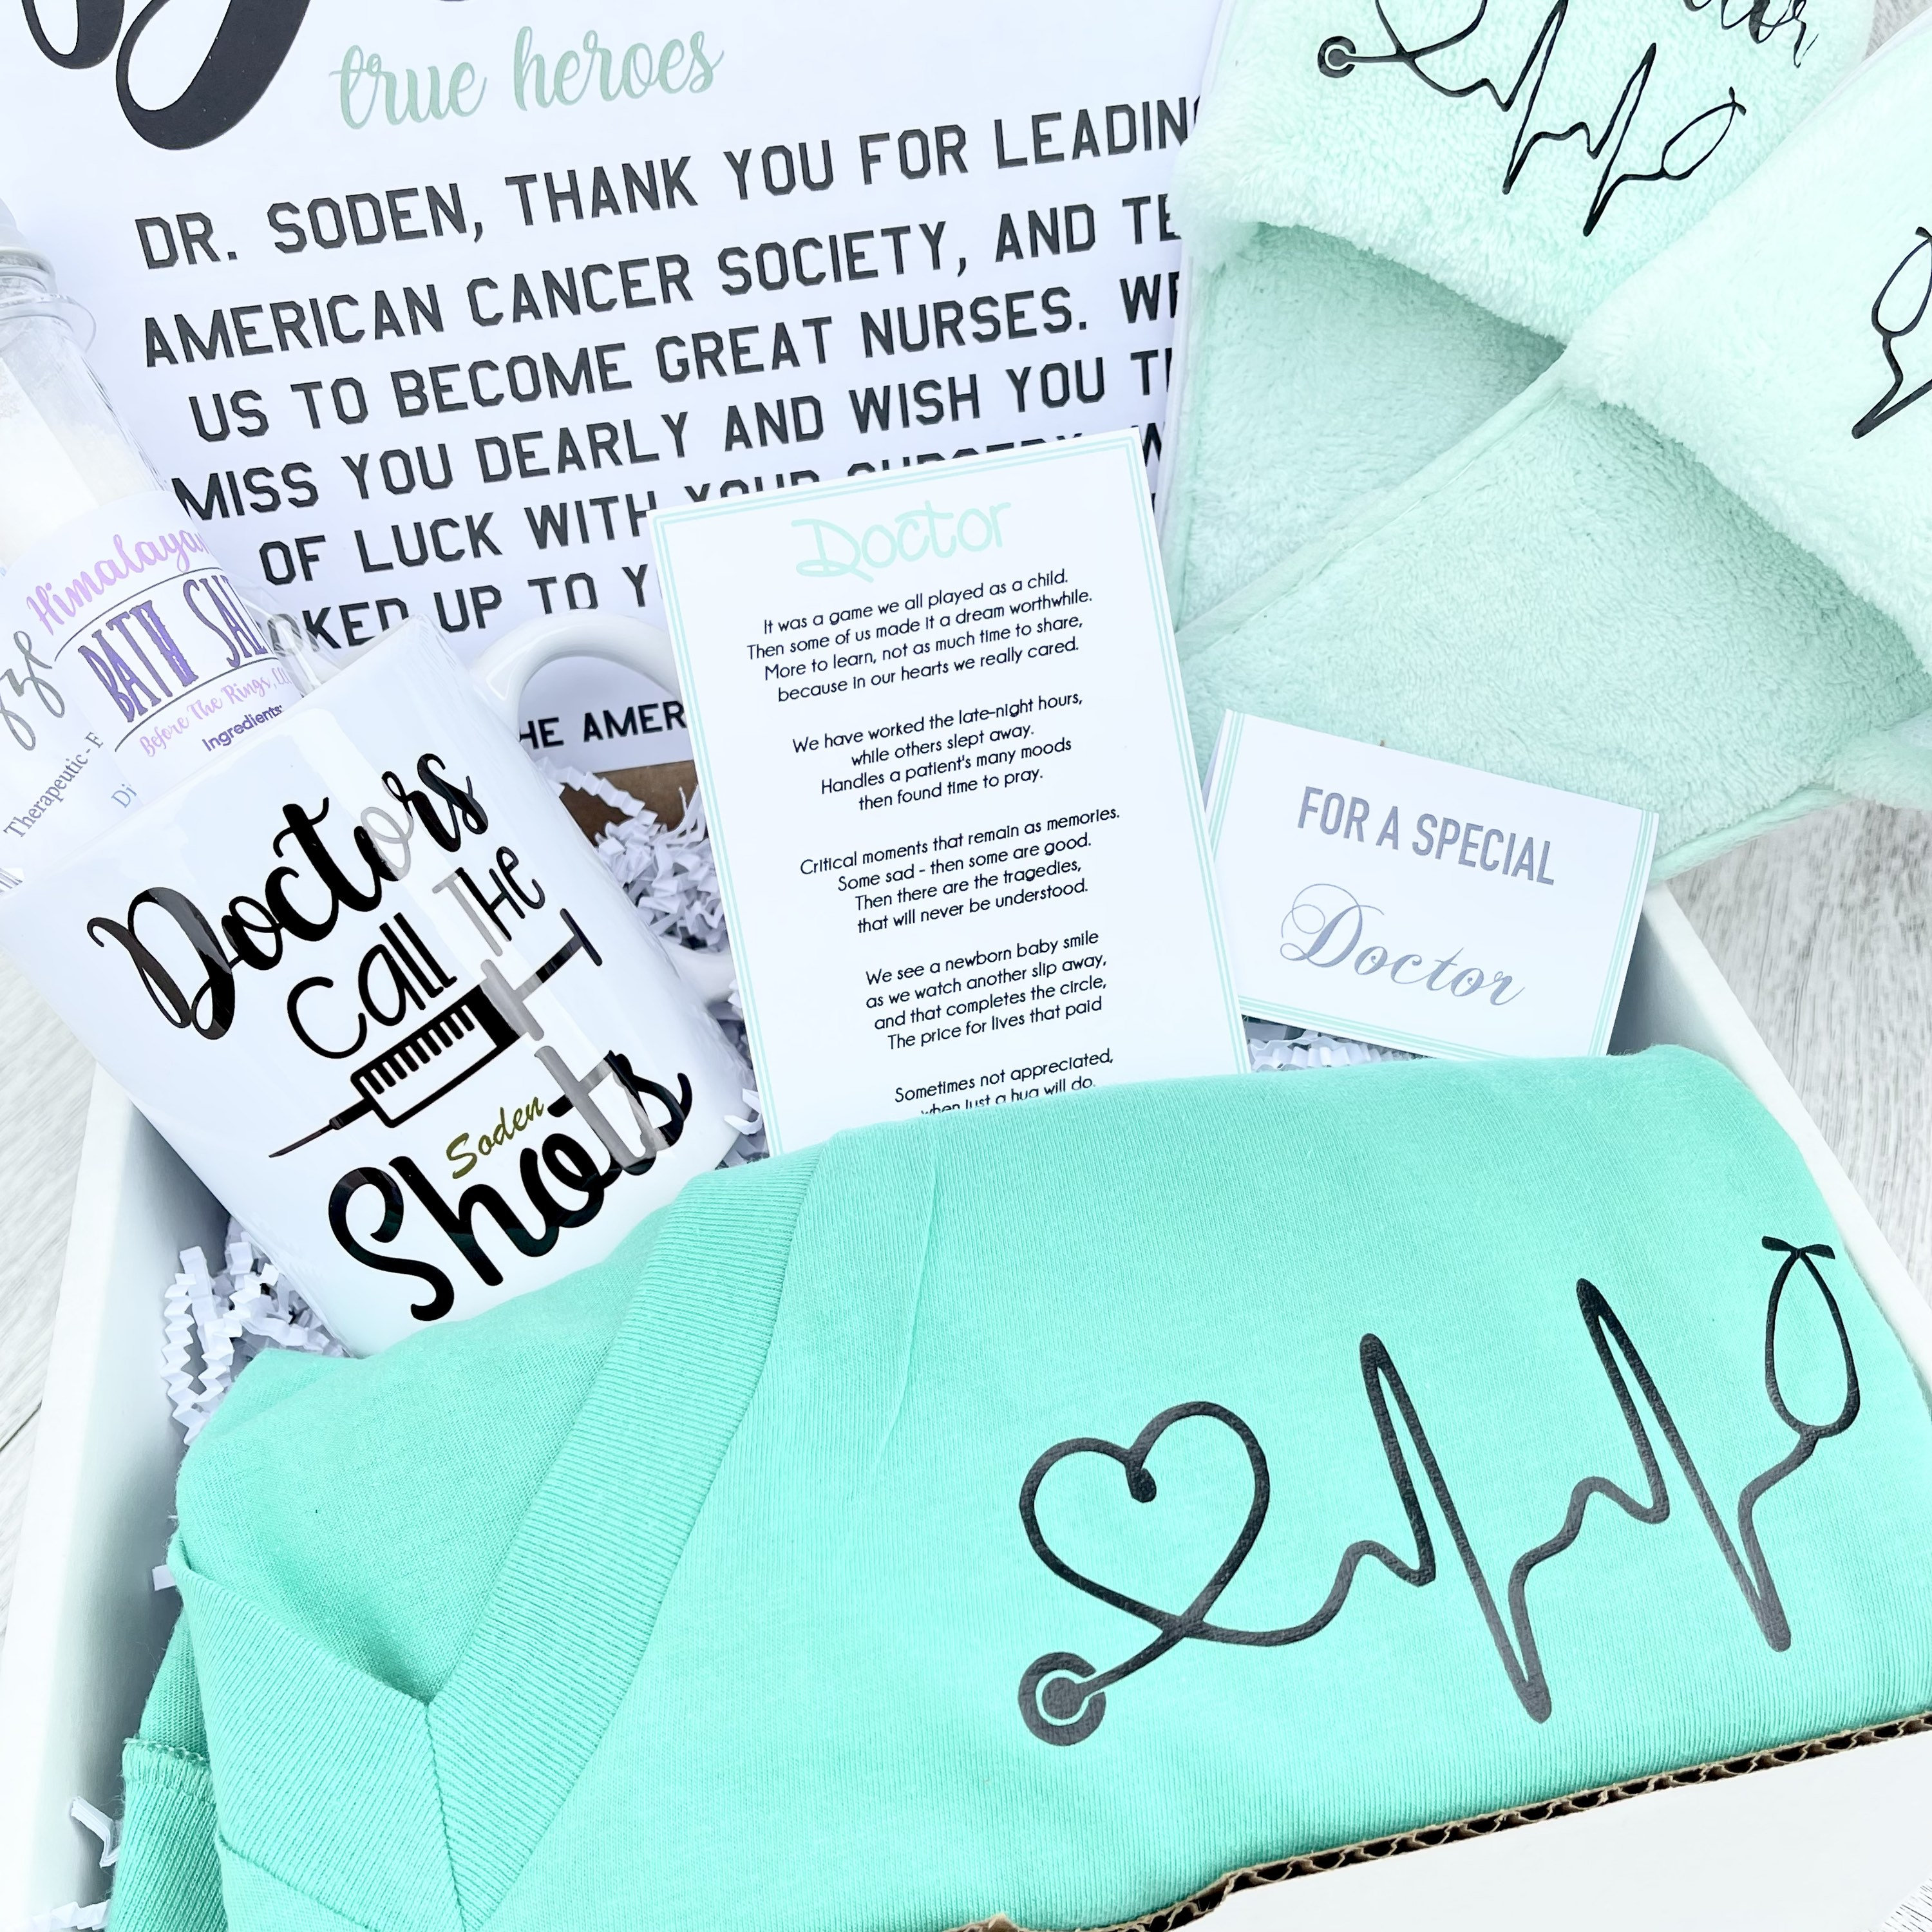 true heroes
DR. SODEN, THANK YOU FOR LEADING
AMERICAN CANCER SOCIETY, AND
US TO BECOME GREAT NURSES.
MISS YOU DEARLY AND WISH YOU
OF LUCK WITH YOUR SURGERY.
UP TO
THE AMER
Himalayan
BATH SAL
Before The Rings,
Ingredients:
Therapeutic-
Doctors
Call THE
Soden
Shots
Doctor
It was a game we all played as a child.
Then some of us made it a dream worthwhile.
More to learn, not as much time to share,
because in our hearts we really cared.
We have worked the late-night hours,
while others slept away.
Handles a patient's many moods
then found time to pray.
Critical moments that remain as memories.
Some sad - then some are good.
Then there are the tragedies,
that will never be understood.
We see a newborn baby smile
as we watch another slip away,
and that completes the circle,
The price for lives that paid
Sometimes not appreciated,
when just a hug will do.
FOR A SPECIAL
Doctor